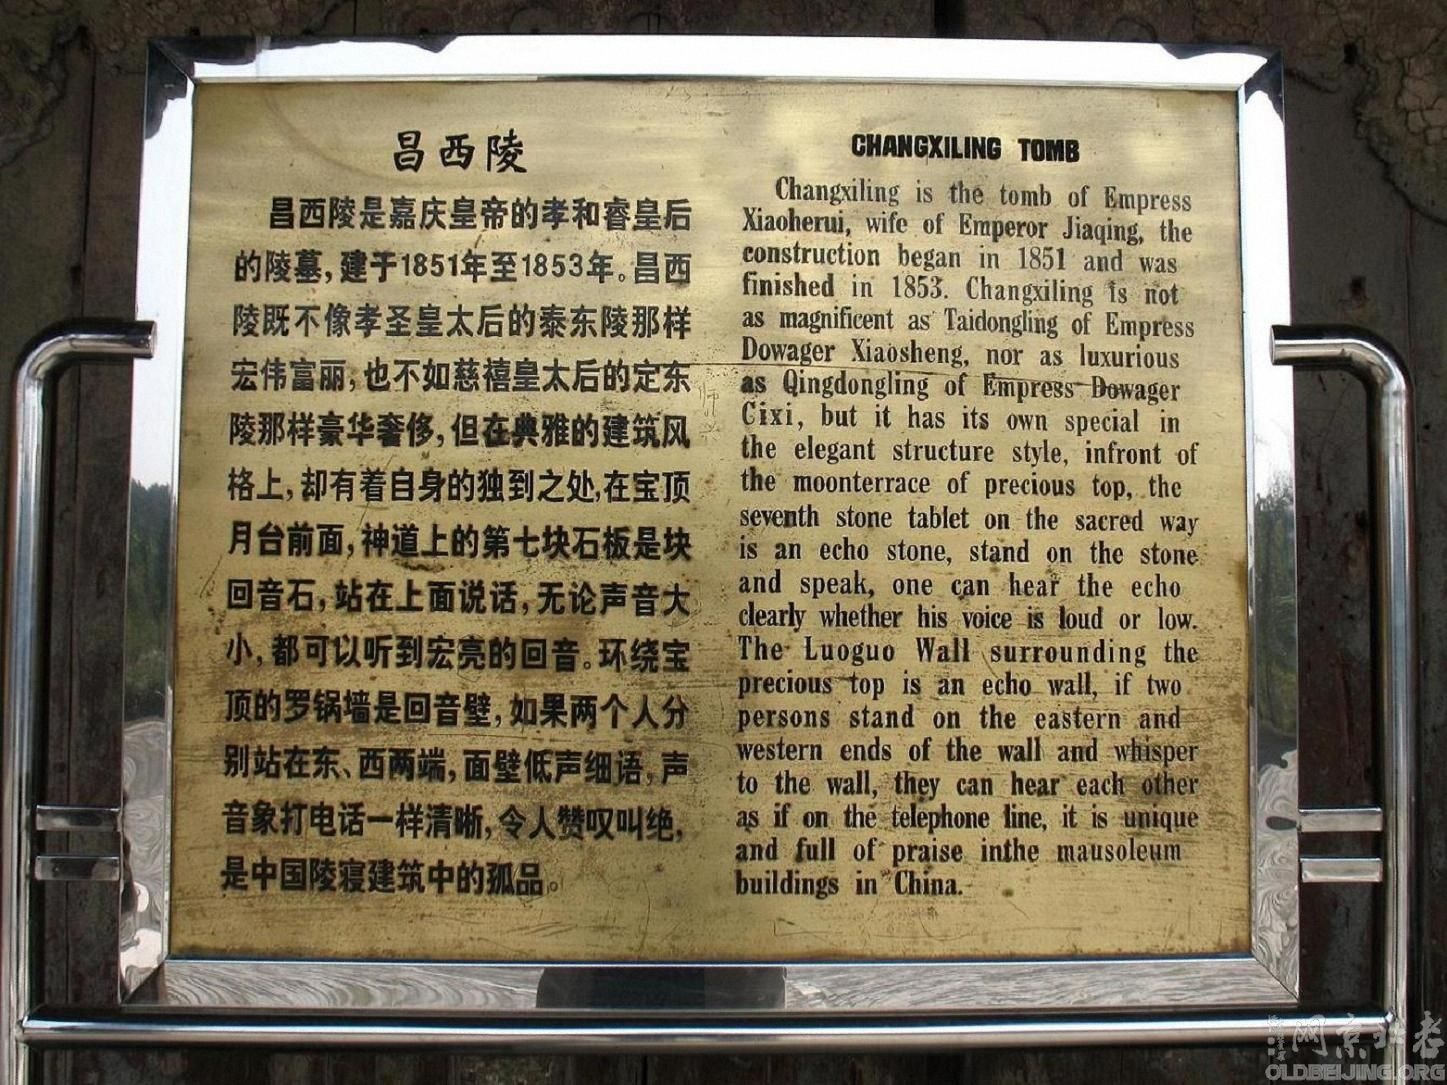 昌西陵
昌西陵是嘉庆皇帝的孝和睿皇后
的陵墓，建于1851年至1853年。昌西
陵既不像孝圣皇太后的泰东陵那样
宏伟富丽，也不如慈禧皇太后的定东
陵那样豪华奢侈，但在典雅的建筑风
格上，却有着自身的独到之处，在宝顶
月台前面，神道上的第七块石板是块
回音石，站在上面说话，无论声音大
小，都可以听到宏亮的回音。环绕宝
顶的罗锅墙是回音壁，如果两个人分
别站在东、西两端，面壁低声细语，声
音象打电话一样清晰，令人赞叹叫绝，
是中国陵寝建筑中的孤品。
CHANGXILING TOMB
Changxiling is the tomb of Empress
Xiaoherui, wife of Emperor Jiaqing, the
construction began in 1851 and was
finished in 1853. Changxiling is not
as magnificent as Taidongling of Empress
Dowager Xiaosheng, nor as luxurious
as Qingdongling of Empress Dowager
Cixi, but it has its own special in
the elegant structure style, infront of
the moonterrace of precious top, the
seventh stone tablet on the sacred way
is an echo stone, stand on the stone
and speak, one can hear the echo
clearly whether his voice is loud or low.
The Luoguo Wall surrounding the
precious top is an echo wall, if two
persons stand on the eastern and
western ends of the wall and whisper
to the wall, they can hear each other
as if on the telephone line, it is unique
and full of praise inthe mausoleum
buildings in China.
网京北老
OLDBEIJING.ORG